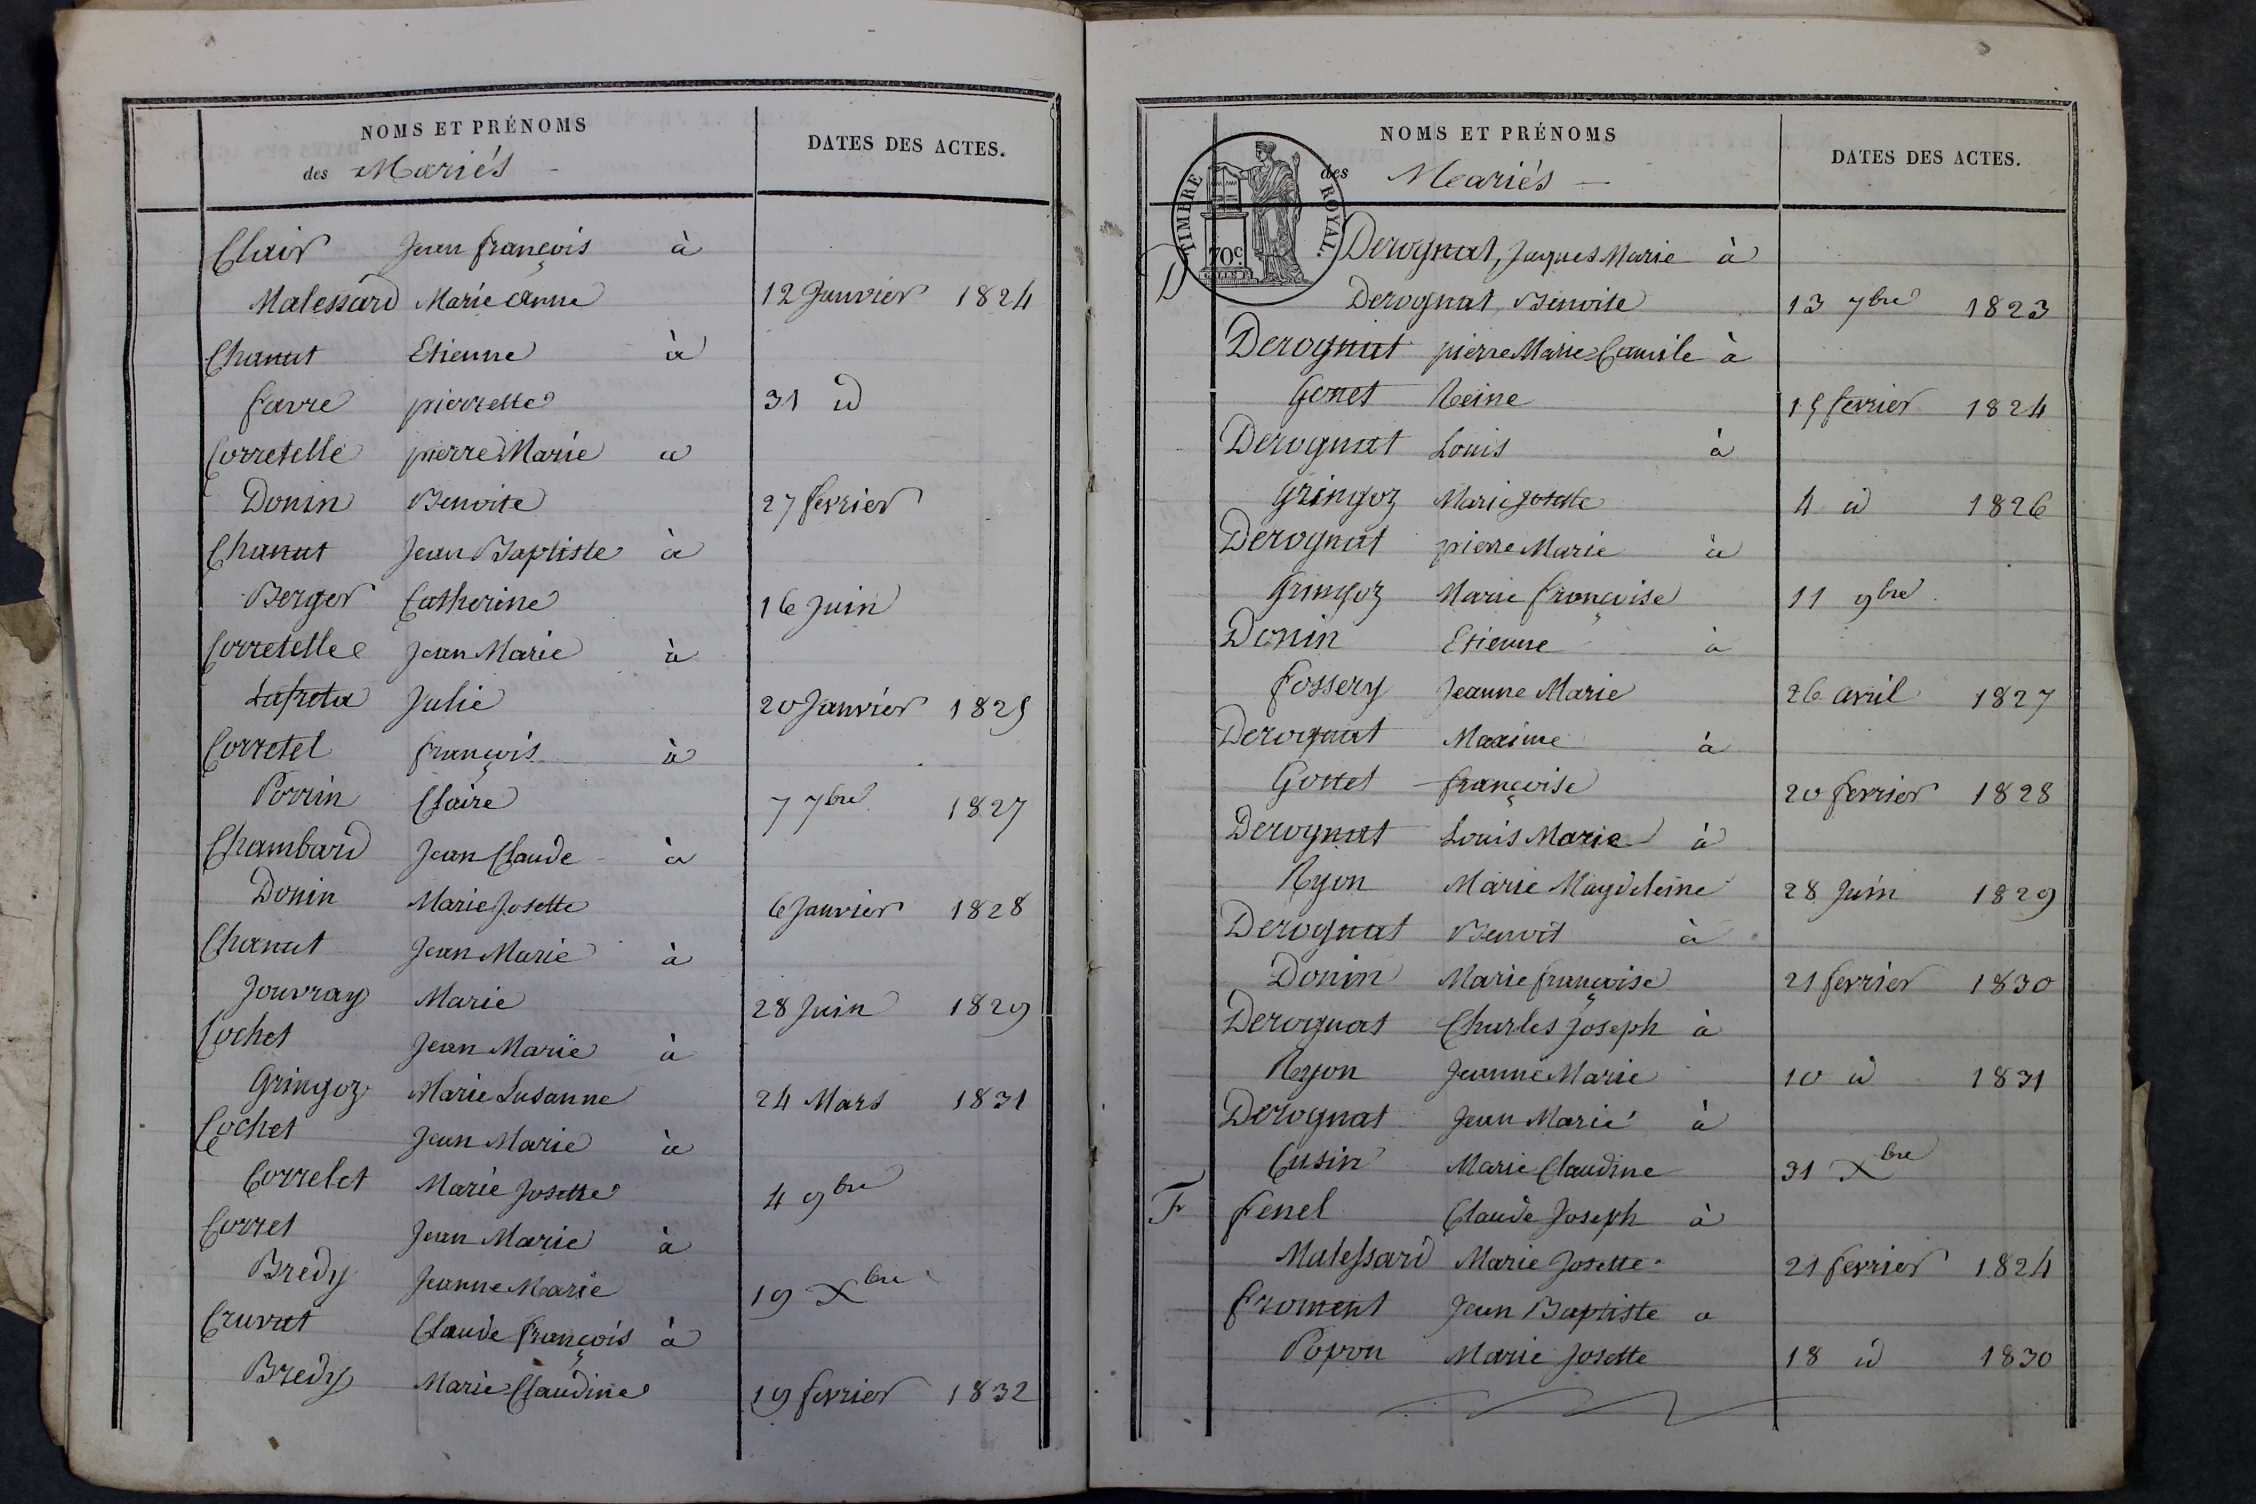 NOMS ET PRÉNOMS
des Mariés
DATES DES ACTES.
Clair Jean françois à
Malessard Marie anne 12 Janvier 1824
Chanut Etienne à
favre pierrette 31 id
Corretelle pierre Marie a
Donin Benoite 27 fevrier
Chanut Jean Baptiste à
Berger Catherine 16 Juin
Corretelle Jean Marie à
Julie 20 Janvier 1825
Corretel françois à
Perrin Claire 7 7bre 1827
Chambard Jean Claude à
Donin Marie Josette 6 Janvier 1828
Chanut Jean Marie à
Jouvray Marie 28 Juin 1829
Cochet Jean Marie à
Gringoz Marie Susanne 24 Mars 1831
Cochet Jean Marie à
Correlet Marie Josette 4 9bre
Corret Jean Marie à
Bredy Jeanne Marie 19 Xbre
Cruvat Claude françois à
Bredy Marie Claudine 19 fevrier 1832
NOMS ET PRÉNOMS
des Mariés
DATES DES ACTES.
TIMBRE ROYAL.
70c.
D Derognat, Jaques Marie à
Derognat Benoite 13 7bre 1823
Derognat pierre Marie Camile à
Gonet Reine 15 fevrier 1824
Derognat Louis à
Gringoz Marie Josette 4 id 1826
Derognat pierre Marie à
Gringoz Marie françoise 11 9bre
Donin Etienne à
Fossery Jeanne Marie 26 avril 1827
Derognat Maxime à
Gottet françoise 20 fevrier 1828
Derognat Louis Marie à
Ryon Marie Magdeleine 28 Juin 1829
Derognat Benoit à
Donin Marie françoise 21 fevrier 1830
Derognat Charles Joseph à
Ryon Jeanne Marie 10 id 1831
Derognat Jean Marie à
Cusin Marie Claudine 31 Xbre
F fenel Claude Joseph à
Malessard Marie Josette 21 fevrier 1824
froment Jean Baptiste a
Popon Marie Josette 18 id 1830